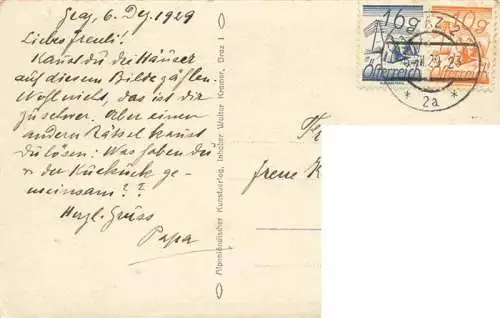 Graz, 6. Dez. 1929
Liebes Irenli!
Kannst du die Häuser
auf diesem Bilde zählen.
Wohl nicht, das ist dir
zu schwer. Aber einen
andern Rätsel kannst
Du lösen: Was haben du
u der Kuckuck ge-
meinsam??
Herzl. Grüss
Papa
Alpenländischer Kunstverlag, Inhaber Walter Kramer, Graz I
16g
10g
Österreich
Österreich
2
29 23
* 2a *
Irene K